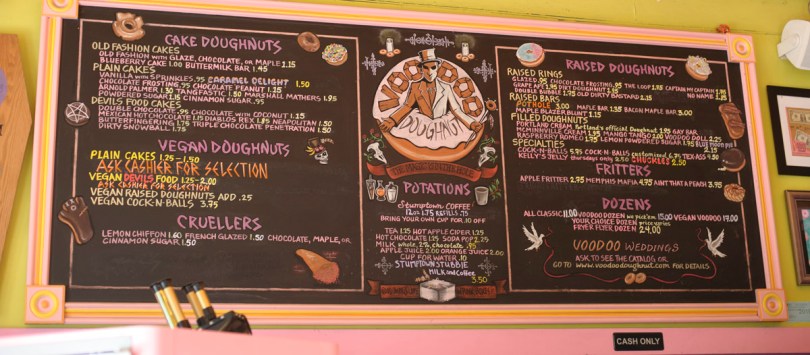 CAKE DOUGHNUTS
OLD FASHION CAKES
OLD FASHION WITH GLAZE, CHOCOLATE, OR MAPLE 1.15
BLUEBERRY CAKE 1.00 BUTTERMILK BAR 1.45
PLAIN CAKES
VANILLA WITH SPRINKLES .95 CARAMEL DELIGHT 1.50
CHOCOLATE FROSTING .95 CHOCOLATE PEANUT 1.15
ARNOLD PALMER 1.30 TANGFASTIC 1.50 MARSHALL MATHERS 1.95
POWDERED SUGAR .95 CINNAMON SUGAR .95
DEVILS FOOD CAKES
DOUBLE CHOCOLATE .95 CHOCOLATE WITH COCONUT 1.15
MEXICAN HOT CHOCOLATE 1.15 DIABLOS REX 1.75 NEAPOLITAN 1.50
BUTTERFINGERING 1.75 TRIPLE CHOCOLATE PENETRATION 1.50
DIRTY SNOWBALL 1.75
VEGAN DOUGHNUTS
PLAIN CAKES 1.25-1.50
ASK CASHIER FOR SELECTION
VEGAN DEVILS FOOD 1.25-2.00
ASK CASHIER FOR SELECTION
VEGAN RAISED DOUGHNUTS ADD .25
VEGAN COCK-N-BALLS 3.75
CRUELLERS
LEMON CHIFFON 1.60 FRENCH GLAZED 1.50 CHOCOLATE, MAPLE, OR
CINNAMON SUGAR 1.50
VOODOO
DOUGHNUT
THE MAGIC IS IN THE HOLE
POTATIONS
Stumptown COFFEE
12oz 1.75 REFILLS .75
BRING YOUR OWN CUP FOR .10 OFF
TEA 1.35 HOT APPLE CIDER 1.25
HOT CHOCOLATE 1.25 SODA POP 2.25
MILK whole, 2%, chocolate .95
APPLE JUICE 2.00 ORANGE JUICE 2.00
CUP FOR WATER .10
STUMPTOWN STUBBIE
MILK and Coffee
3.50
RAISED DOUGHNUTS
RAISED RINGS
GLAZED .95 CHOCOLATE FROSTING .95 THE LOOP 2.15 CAPTAIN MY CAPTAIN 1.95
GRAPE APE 1.95 DIRT DOUGHNUT 1.95
DOUBLE BUBBLE 1.75 OLD DIRTY BASTARD 2.15
NO NAME 2.15
RAISED BARS
POT HOLE 3.00 MAPLE BAR 1.35 BACON MAPLE BAR 3.00
MAPLE BLAZER BLUNT 1.15
FILLED DOUGHNUTS
PORTLAND CREAM Portland's official Doughnut 1.95 GAY BAR
MCMINNVILLE CREAM 1.95 MANGO TANGO 2.00 VOODOO DOLL 2.25
RASPBERRY ROMEO 1.75 LEMON POWDERED SUGAR 1.75
SPECIALTIES
COCK-N-BALLS 5.95 COCK-N-BALLS customized 6.75 TEX-ASS 4.50
KELLY'S JELLY thursdays only 2.50 CHUCKLES 2.50
FRITTERS
APPLE FRITTER 2.95 MEMPHIS MAFIA 4.75 AIN'T THAT A PEACH 3.95
DOZENS
ALL CLASSIC 11.00 VOODOO DOZEN 15.00 VEGAN VOODOO 19.00
YOUR CHOICE DOZEN price varies
24.00
VOODOO WEDDINGS
ASK TO SEE THE CATALOG OR
GO TO www.voodoodoughnut.com FOR DETAILS
CASH ONLY